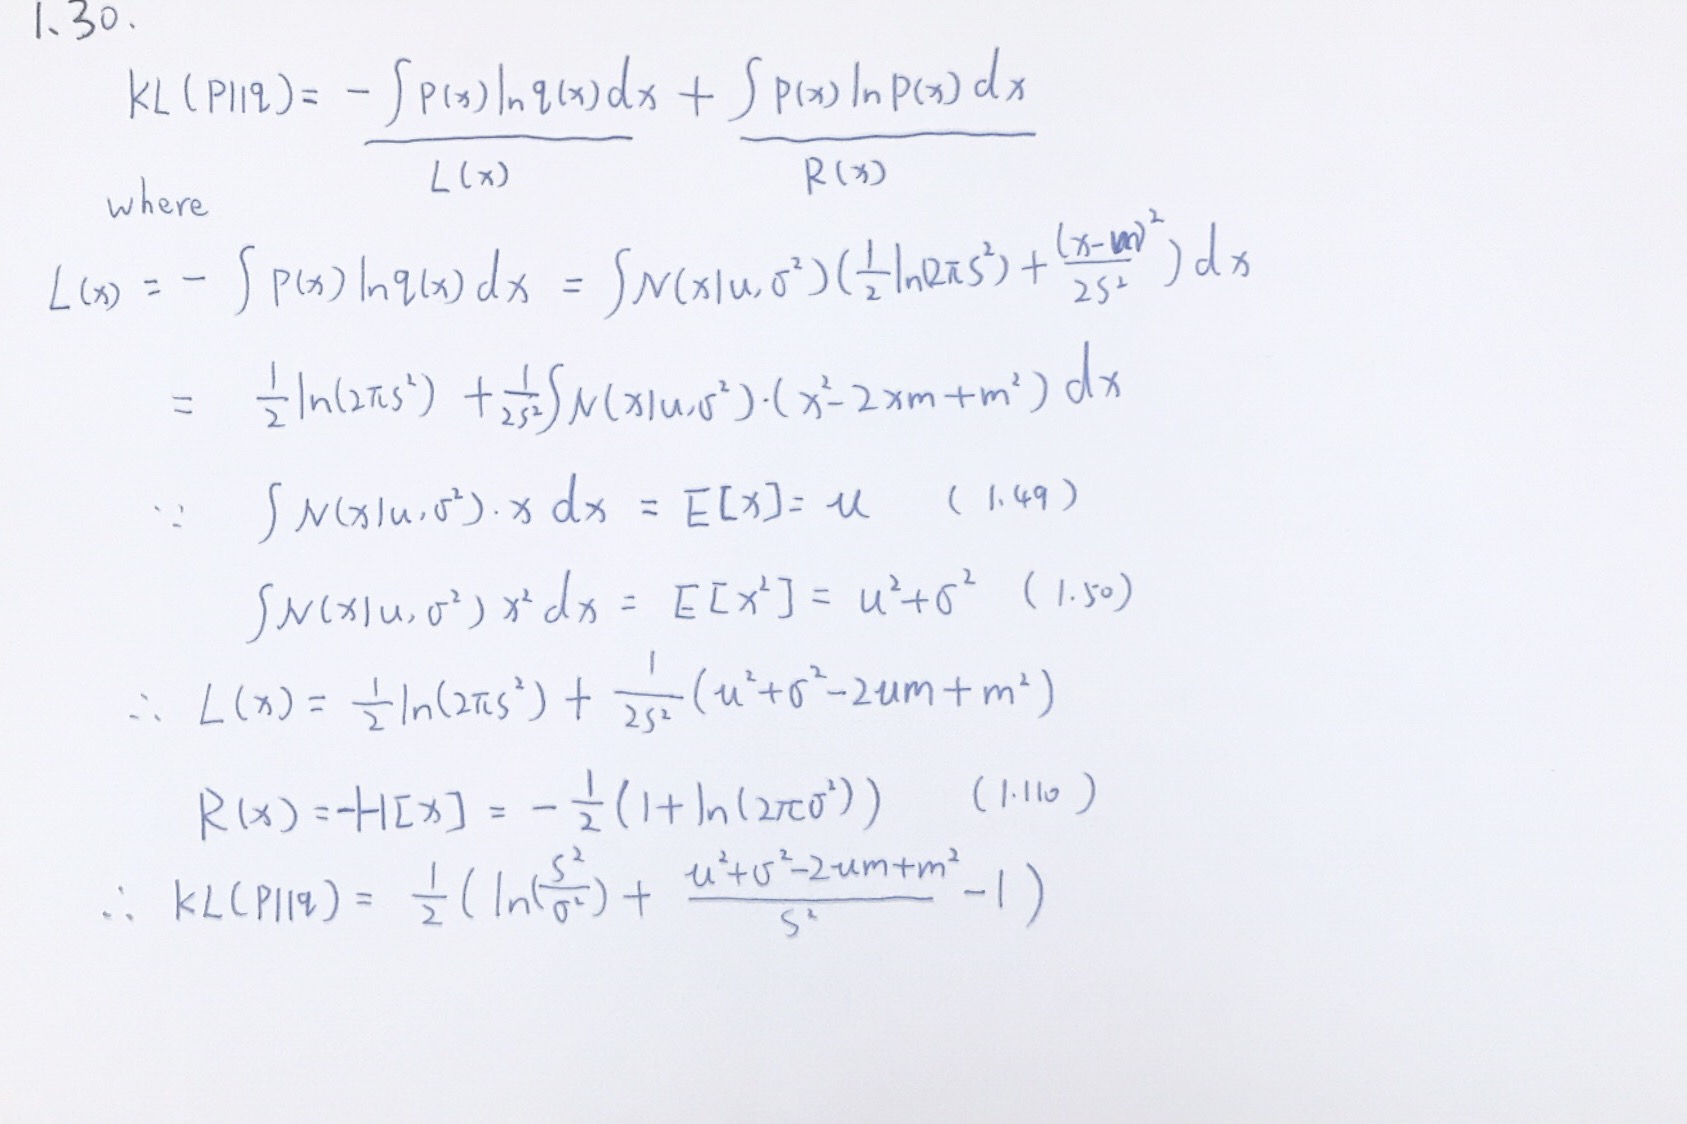 1.30.
KL(P||q) = - ∫P(x) ln q(x) dx + ∫P(x) ln P(x) dx
L(x) R(x)
where
L(x) = - ∫P(x) ln q(x) dx = ∫N(x|u, σ²)(1/2 ln(2πs²) + (x-m)²/2s²) dx
= 1/2 ln(2πs²) + 1/2s² ∫N(x|u, σ²)·(x² - 2xm + m²) dx
∵ ∫N(x|u, σ²)·x dx = E[x] = u (1.49)
∫N(x|u, σ²) x² dx = E[x²] = u² + σ² (1.50)
∴ L(x) = 1/2 ln(2πs²) + 1/2s² (u² + σ² - 2um + m²)
R(x) = -H[x] = - 1/2 (1 + ln(2πσ²)) (1.110)
∴ KL(P||q) = 1/2 ( ln(s²/σ²) + (u² + σ² - 2um + m²)/s² - 1 )